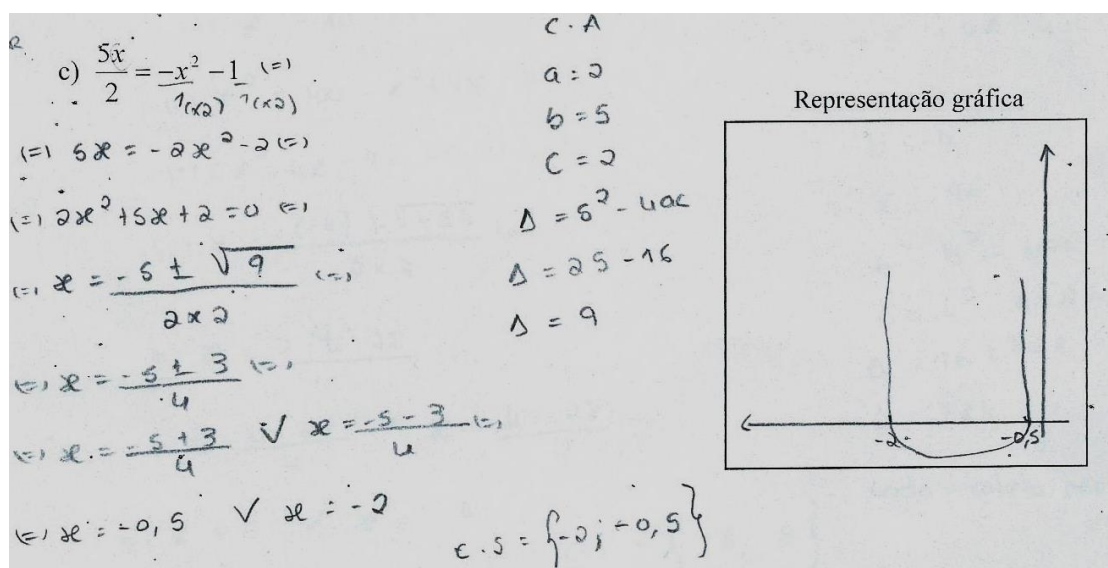 c) 5x/2 = -x² - 1 (=)
1(x2) 1(x2)
(=) 5x = -2x² - 2 (=)
(=) 2x² + 5x + 2 = 0 (=)
(=) x = -5 ± √9 / 2x2 (=)
(=) x = -5 ± 3 / 4 (=)
(=) x = -5 + 3 / 4 V x = -5 - 3 / 4 (=)
(=) x = -0,5 V x = -2
C.A
a = 2
b = 5
C = 2
Δ = 5² - 4ac
Δ = 25 - 16
Δ = 9
C.S = {-2; -0,5}
Representação gráfica
-2 -0,5